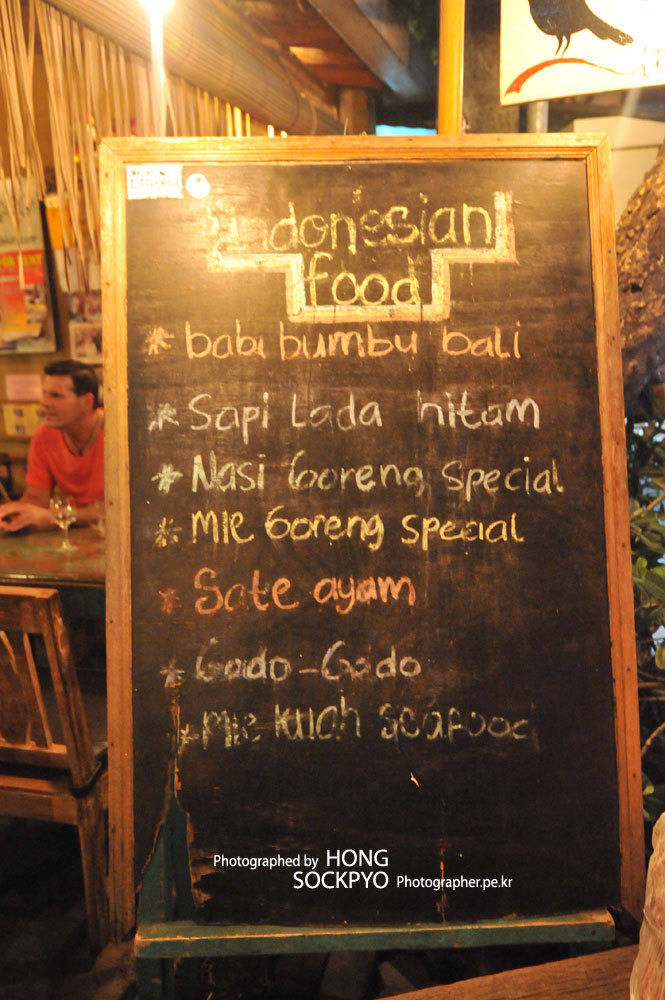 Indonesian
food
* babi bumbu bali
* Sapi Lada hitam
* Nasi Goreng Special
* MIE Goreng Special
* Sate ayam
* Gado-Gado
* MIE KUAH SEAFOOD
Photographed by HONG
SOCKPYO Photographer.pe.kr